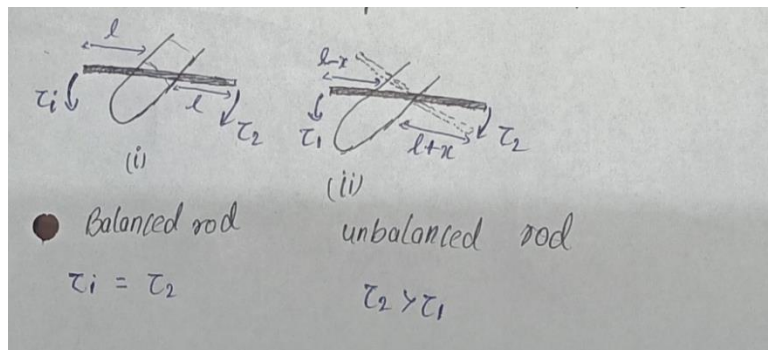 l
l-x
τi
l
τ2
τ1
l+x
τ2
(i)
(ii)
Balanced rod
unbalanced rod
τi = τ2
τ2 > τ1